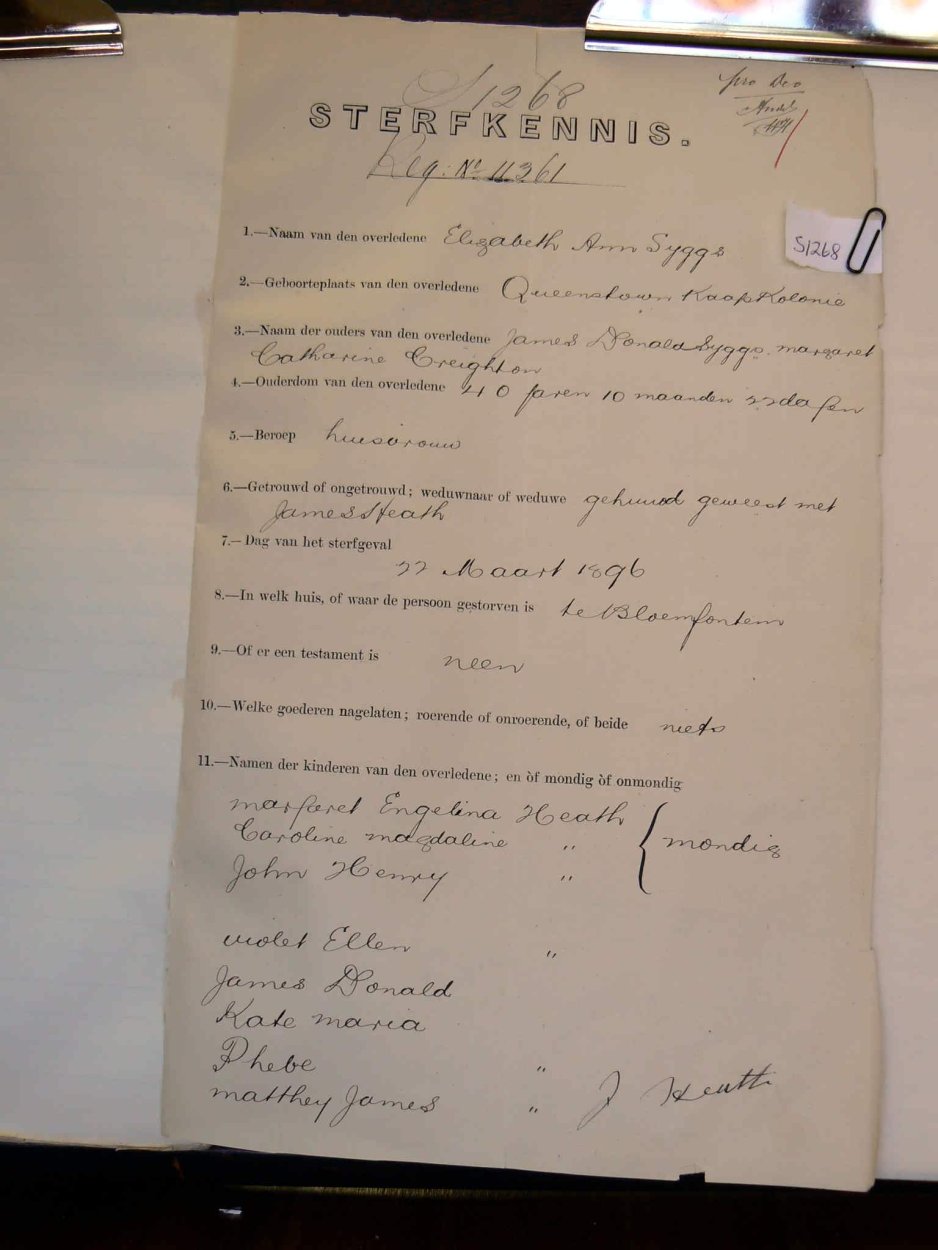 S1268
pro Deo
STERFKENNIS.
Reg: No 11361
S1268
1.—Naam van den overledene Elizabeth Ann Syggs
2.—Geboorteplaats van den overledene Queenstown Kaap Kolonie
3.—Naam der ouders van den overledene James Donald Syggs. margaret
Catharine Creighton
4.—Ouderdom van den overledene 40 jaren 10 maanden 22 dagen
5.—Beroep huisvrouw
6.—Getrouwd of ongetrouwd; weduwnaar of weduwe gehuwd geweest met
James Heath
7.—Dag van het sterfgeval
22 Maart 1896
8.—In welk huis, of waar de persoon gestorven is te Bloemfontein
9.—Of er een testament is neen
10.—Welke goederen nagelaten; roerende of onroerende, of beide niets
11.—Namen der kinderen van den overledene; en òf mondig òf onmondig
margaret Engelina Heath
Caroline magdaline " mondig
John Henry "
violet Ellen "
James Donald
Kate maria
Phebe "
matthey James " J Heath